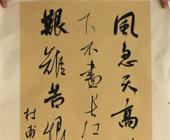 風急天高
下不盡长江
艱難苦恨
杜甫